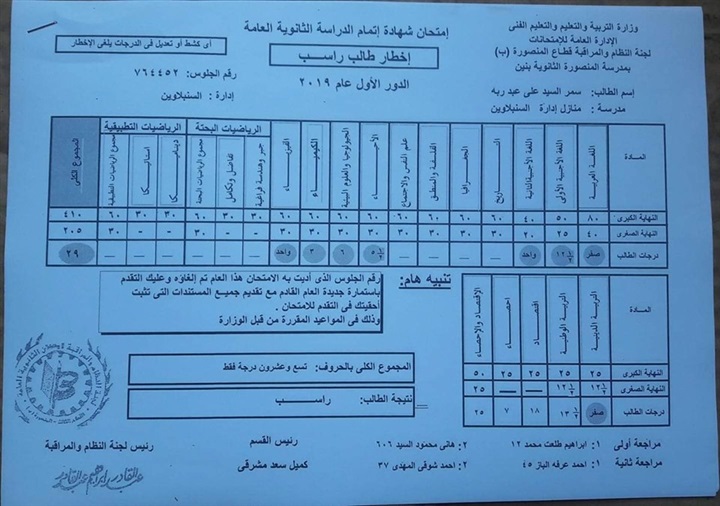 إمتحان شهادة إتمام الدراسة الثانوية العامة
إخطار طالب راسب
الدور الأول عام ٢٠١٩
وزارة التربية والتعليم والتعليم الفنى
الإدارة العامة للإمتحانات
لجنة النظام والمراقبة قطاع المنصورة (ب)
بمدرسة المنصورة الثانوية بنين
إسم الطالب: سمر السيد على عبد ربه
مدرسة : منازل إدارة السنبلاوين
أى كشط أو تعديل فى الدرجات يلغى الإخطار
رقم الجلوس: ٧٦٤٤٥٢
إدارة : السنبلاوين
المادة اللغة العربية اللغة الأجنبية الأولى اللغة الأجنبية الثانية التاريخ الجغرافيا الفلسفة والمنطق علم النفس والاجتماع الأحياء الجيولوجيا والعلوم البيئية الكيمياء الفيزياء الرياضيات البحتة جبر وهندسة فراغية تفاضل وتكامل مجموع الرياضيات البحتة الرياضيات التطبيقية ديناميكا استاتيكا مجموع الرياضيات التطبيقية المجموع الكلى
النهاية الكبرى ٨٠ ٥٠ ٤٠ ٦٠ ٦٠ ٦٠ ٦٠ ٦٠ ٦٠ ٦٠ ٦٠ ٣٠ ٣٠ ٦٠ ٣٠ ٣٠ ٦٠ ٤١٠
النهاية الصغرى ٤٠ ٢٥ ٢٠ ٣٠ ٣٠ ٣٠ ٣٠ ٣٠ ٣٠ ٣٠ ٣٠ - - ٣٠ - - ٣٠ ٢٠٥
درجات الطالب صفر ١٢ ١/٢ واحد — — — — ٥ ١/٢ ٦ ٣ واحد — — — — — — ٢٩
تنبيه هام:
رقم الجلوس الذى أديت به الامتحان هذا العام تم إلغاؤه وعليك التقدم
باستمارة جديدة العام القادم مع تقديم جميع المستندات التى تثبت
أحقيتك فى التقدم للامتحان .
وذلك فى المواعيد المقررة من قبل الوزارة
المادة التربية الدينية التربية الوطنية اقتصاد احصاء الإقتصاد والإحصاء
النهاية الكبرى ٢٥ ٢٥ ٢٥ ٢٥ ٥٠
النهاية الصغرى ١٢ ١/٢ ١٢ ١/٢ — — ٢٥
درجات الطالب صفر ١٣ ١/٢ ١٨ ٧ ٢٥
المجموع الكلى بالحروف: تسع وعشرون درجة فقط
نتيجة الطالب: راسب
مراجعة أولى ١: ابراهيم طلعت محمد ١٢ ٢: هانى محمود السيد ٦٠٦
مراجعة ثانية ١: احمد عرفه الباز ٤٥ ٢: احمد شوقى المهدى ٣٧
رئيس القسم
كميل سعد مشرقى
رئيس لجنة النظام والمراقبة